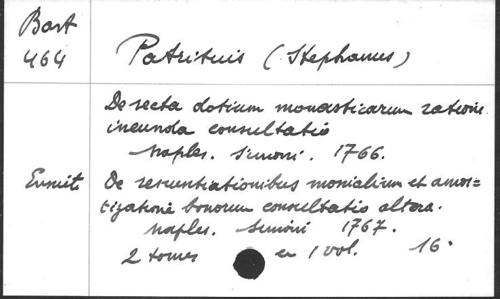 Bart
464
Patrituis (Stephanus)
De recta dotium monasticarum ratione
ineunda consultatio
Naples. Simoni. 1766.
Ermit
De renuntiationibus monialium et amor=
tizatione bonorum consultatio altera.
Naples. Simoni 1767.
2 tomes en 1 vol. 16°